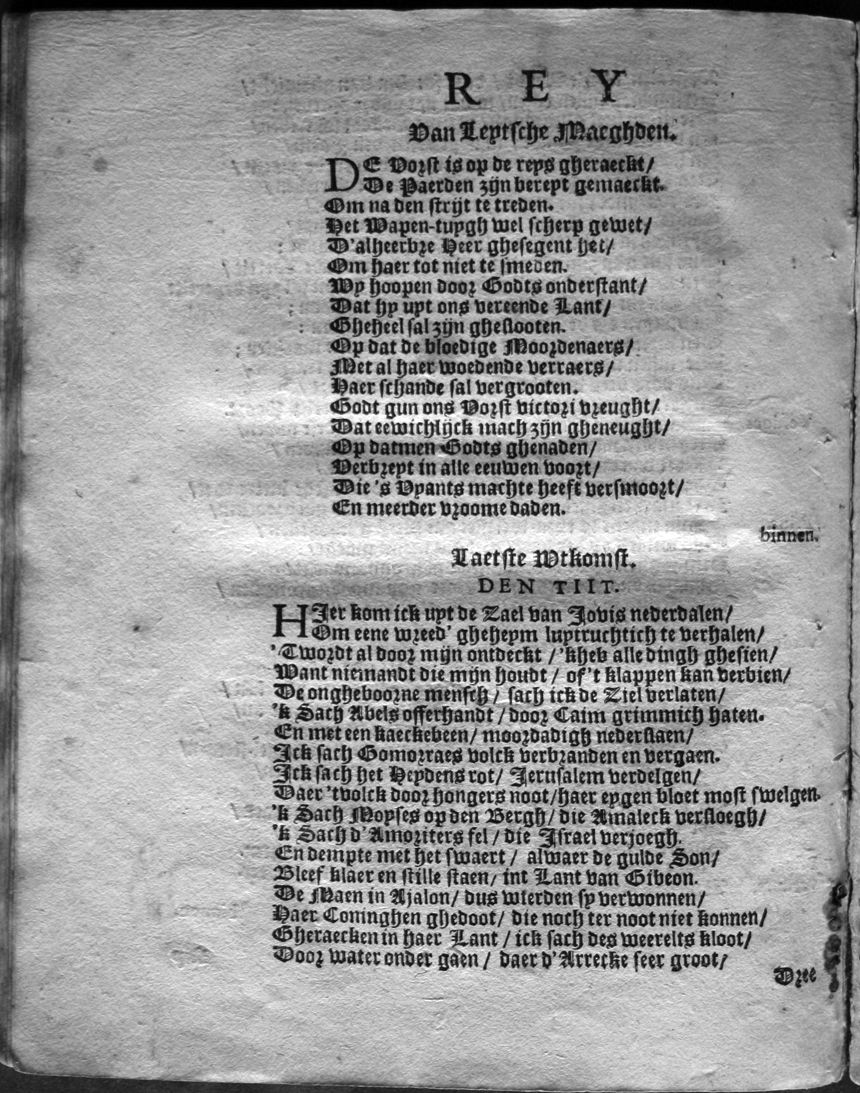 R E Y
Van Leytsche Maeghden.
DE Vorst is op de reys gheraeckt/
De Paerden zijn bereyt gemaeckt.
Om na den strijt te treden.
Het Wapen-tuygh wel scherp gewet/
D'alheerbre Heer ghesegent het/
Om haer tot niet te smeden.
Wy hoopen door Godts onderstant/
Dat hy uyt ons vereende Lant/
Gheheel sal zijn gheslooten.
Op dat de bloedige Moordenaers/
Met al haer woedende verraers/
Haer schande sal vergrooten.
Godt gun ons Vorst victori vreught/
Dat eewichlijck mach zijn gheneught/
Op datmen Godts ghenaden/
Verbreyt in alle eeuwen voort/
Die 's Vyants machte heeft versmoort/
En meerder vroome daden.
binnen.
Laetste Wtkomst.
DEN TIIT.
HIer kom ick uyt de Zael van Jovis nederdalen/
Om eene wreed' gheheym luytruchtich te verhalen/
'Twordt al door mijn ontdeckt / 'kheb alle dingh ghesien/
Want niemandt die mijn houdt / of 't klappen kan verbien/
De ongheboorne mensch / sach ick de Ziel verlaten/
'k Sach Abels offerhandt / door Caim grimmich haten.
En met een kaeckebeen / moordadigh nederslaen/
Ick sach Gomorraes volck verbranden en vergaen.
Ick sach het Heydens rot / Jerusalem verdelgen/
Daer 'tvolck door hongers noot/haer eygen bloet most swelgen.
'k Sach Moyses op den Bergh / die Amaleck versloegh/
'k Sach d'Amoriters fel / die Israel verjoegh.
En dempte met het swaert / alwaer de gulde Son/
Bleef klaer en stille staen / int Lant van Gibeon.
De Maen in Ajalon / dus wierden sy verwonnen/
Haer Coninghen ghedoot / die noch ter noot niet konnen/
Gheraecken in haer Lant / ick sach des weerelts kloot/
Door water onder gaen / daer d'Arrecke seer groot/
Dree